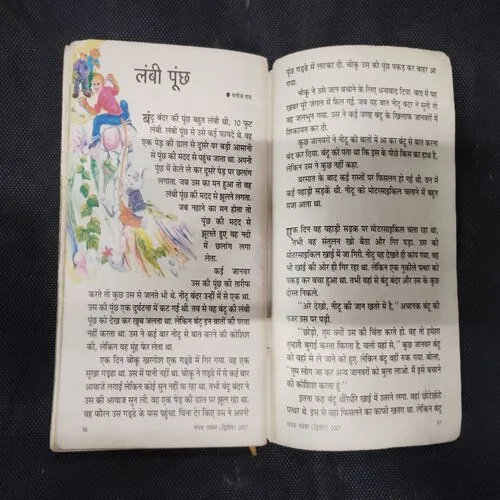 लंबी पूंछ
● मनोज राय
बंटू बंदर की पूंछ बहुत लंबी थी, 10 फुट
लंबी. लंबी पूंछ से उसे कई फायदे थे. वह
एक पेड़ की डाल से दूसरे पर बड़ी आसानी
से पूंछ की मदद से पहुंच जाता था. अपनी
पूंछ में केले ले कर दूसरे पेड़ पर छलांग
लगाता. जब उस का मन हुआ तो वह
लंबी पूंछ की मदद से झूलने लगता.
जब नहाने का मन होता तो
पूंछ की मदद से
झूलते हुए वह नदी
में छलांग लगा
लेता.
कई जानवर
उस की पूंछ की तारीफ
करते तो कुछ उस से जलते भी थे. नीटू बंदर उन्हीं में से एक था.
उस की पूंछ एक दुर्घटना में कट गई थी. तब से वह बंटू की लंबी
पूंछ को देख कर खूब जलता था. लेकिन बंटू इन बातों की परवा
नहीं करता था. उस ने कई बार नीटू से बात करने की कोशिश
की, लेकिन वह मुंह फेर लेता था.
एक दिन चीकू खरगोश एक गड्ढे में गिर गया. वह एक
सूखा गड्ढा था. उस में पानी नहीं था. चीकू ने गड्ढे में से कई बार
आवाजें लगाईं लेकिन कोई सुन नहीं पा रहा था. तभी बंटू बंदर ने
उस की आवाज सुन ली. वह एक पेड़ की डाल पर झूला रहा था.
वह फौरन उस गड्ढे के पास पहुंचा. बिना देर किए उस ने अपनी
96
चंपक नवंबर (द्वितीय) 2007
पूंछ गड्ढे में लटका दी. चीकू उस की पूंछ पकड़ कर बाहर आ
गया.
चीकू ने उसे जान बचाने के लिए धन्यवाद दिया. बाद में यह
खबर पूरे जंगल में फैल गई. जब यह बात नीटू बंदर ने सुनी तो
वह जलभुन गया. उस ने कई जगह बंटू के खिलाफ जानवरों में
शिकायत कर दी.
कुछ जानवरों ने नीटू की बातों में आ कर बंटू से बात करना
बंद कर दिया. बंटू को पता था कि इस के पीछे किस का हाथ है,
लेकिन उस ने कुछ नहीं कहा.
बरसात के बाद कई रास्तों पर फिसलन हो गई थी. वन में
कई पहाड़ी सड़कें थी. नीटू को मोटरसाइकिल चलाने में बहुत
मजा आता था.
एक दिन वह पहाड़ी सड़क पर मोटरसाइकिल चला रहा था,
तभी वह संतुलन खो बैठा और गिर पड़ा. उस की
मोटरसाइकिल खाई में जा गिरी. नीटू यह देखते ही कांप गया. वह
भी खाई की ओर ही गिर रहा था. लेकिन एक नुकीले पत्थर को
पकड़ कर बचा हुआ था. तभी वहां से बंटू बंदर और उस के कुछ
दोस्त निकले.
“अरे देखो, नीटू की जान खतरे में है,” अचानक बंटू की
नजर उस पर पड़ी.
“छोड़ो, तुम क्यों उस की चिंता करते हो. वह तो हमेशा
तुम्हारी बुराई करता फिरता है. चलो यहां से,” कुछ जानवर बंटू
को वहां से ले जाने को हुए, लेकिन बंटू वहीं रुक गया. बोला,
“तुम लोग जा कर अन्य जानवरों को बुला लाओ. मैं इसे बचाने
की कोशिश करता हूं.”
इतना कह बंटू धीरेधीरे खाई में उतरने लगा. वहां छोटेछोटे
पत्थर थे. इस से वहां फिसलने का काफी खतरा था. लेकिन बंटू
चंपक नवंबर (द्वितीय) 2007
97